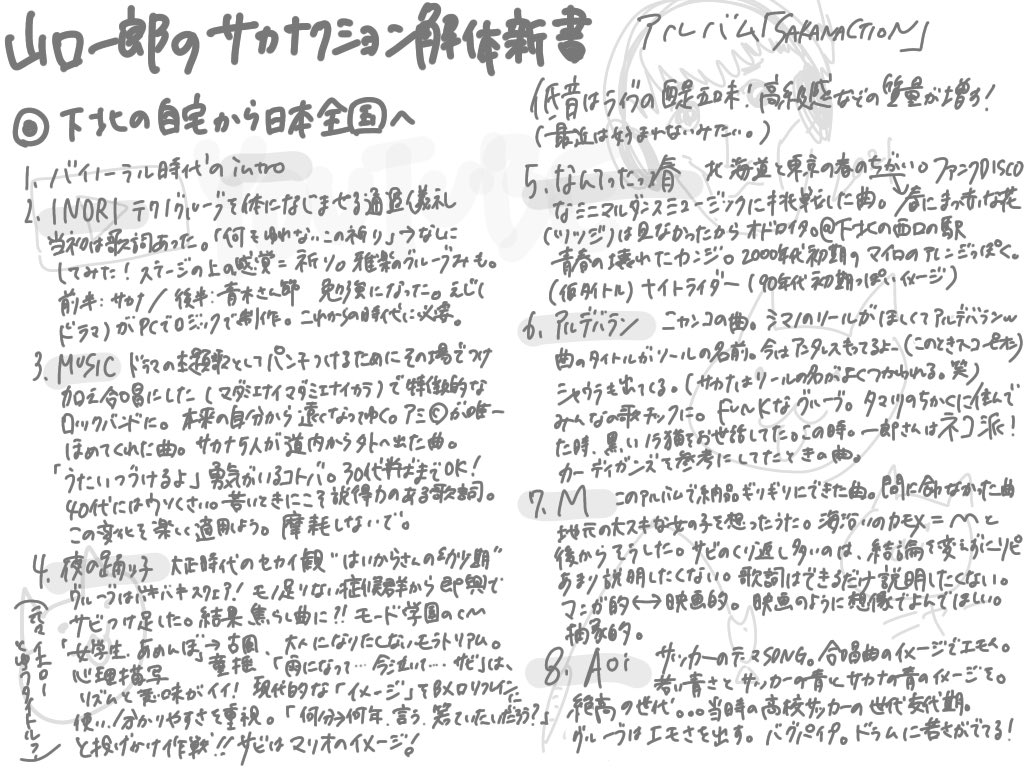 山口一郎のサカナクション解体新書
アルバム「SAKANACTION」
◎下北の自宅から日本全国へ
1. バイノーラル時代のintro
2. INORI テクノグルーブを体になじませる通過儀礼
当初は歌詞あった。「何もゆれないこの祈り」→なしに
してみた！ステージの上の感覚＝祈り。雅楽のグルーブみも。
前半：サカナ/後半：青木さん節 勉強になった。えじ
ドラマ)がPCでロジックで制作。これからの時代に必要。
3. MUSIC ドラマの主題歌としてパンチつけるためにその場でつけ
加え合唱にした(マダミエナイマダミエナイカラ)で特徴的な
ロックバンドに。本来の自分から遠くなってゆく。アミ©が唯一
ほめてくれた曲。サカナ5人が道内から外へ出た曲。
「うたいつづけるよ」勇気がいるコトバ。30代半ばまでOK！
40代にはウソくさい。若いときにこそ説得力のある歌詞。
この変化を楽しく適用しよう。摩耗しないで。
4. 夜の踊り子 大正時代のセカイ観"はいからさんの
グルーブはバキバキスクエア?! モノ足りない症候群から即興で
サビつけ足した。結果焦らし曲に?! モード学園のCM
「女学生、あめんぼ」→古風、大人になりたくないモラトリアム。
心理描写 重推「雨になって…今泣いて…サビ」は、
リズムと意味がイイ！現代的な「イメージ」をBメロリフレイン
使い、分かりやすさを重視。「何分?何年、言う、笑ていたいだろう?」
と投げかけ作戦!! サビはマリオのイメージ！
低音はライブの醍醐味！高級感などの質量が増す！
(最近は好まれないみたい。)
5. なんてったって春 北海道と東京の春のちがい。ファンクDISCO
なミニマルダンスミュージックに挑戦した曲。春にまっ赤な花
(ツツジ)は見なかったからオドロイタ。@下北の西口の駅
青春の壊れたカンジ。2000年代初期のマイロのアレンジっぽく。
(仮タイトル)ナイトライダー(90年代初期っぽいイメージ)
6. アルデバラン ニャンコの曲。シマノのリールがほしくてアルデバランw
曲のタイトルがリールの名前。今はアンタレスもってるよー(このときスコーピオン)
シャウラも出てくる。(サカナはリールの名がよくつかわれる。笑)
みんなの歌チックに。FUNKなグルーブ。タマリのちかくに住んで
た時、黒いノラ猫をお世話してた。この時。一郎さんはネコ派！
カーディガンズを参考にしてたときの曲。
7. M このアルバムで納品ギリギリにできた曲。間に合わなかった曲
地元の大スキな女の子を想ったうた。海沿いのカモメ＝Mと
後からそうした。サビのくり返し多いのは、結論を変えずにリピ
あまり説明したくない。歌詞はできるだけ説明したくない。
マンガ的↔映画的。映画のように想像でよんでほしい。
抽象的。
8. Aoi サッカーのテーマSONG。合唱曲のイメージでエモく。
若い青さとサッカーの青とサカナの青のイメージを。
絶高の世代。。。当時の高校サッカーの世代交代期。
グルーブはエモさを出す。バグパイプ。ドラムに若さがでてる！